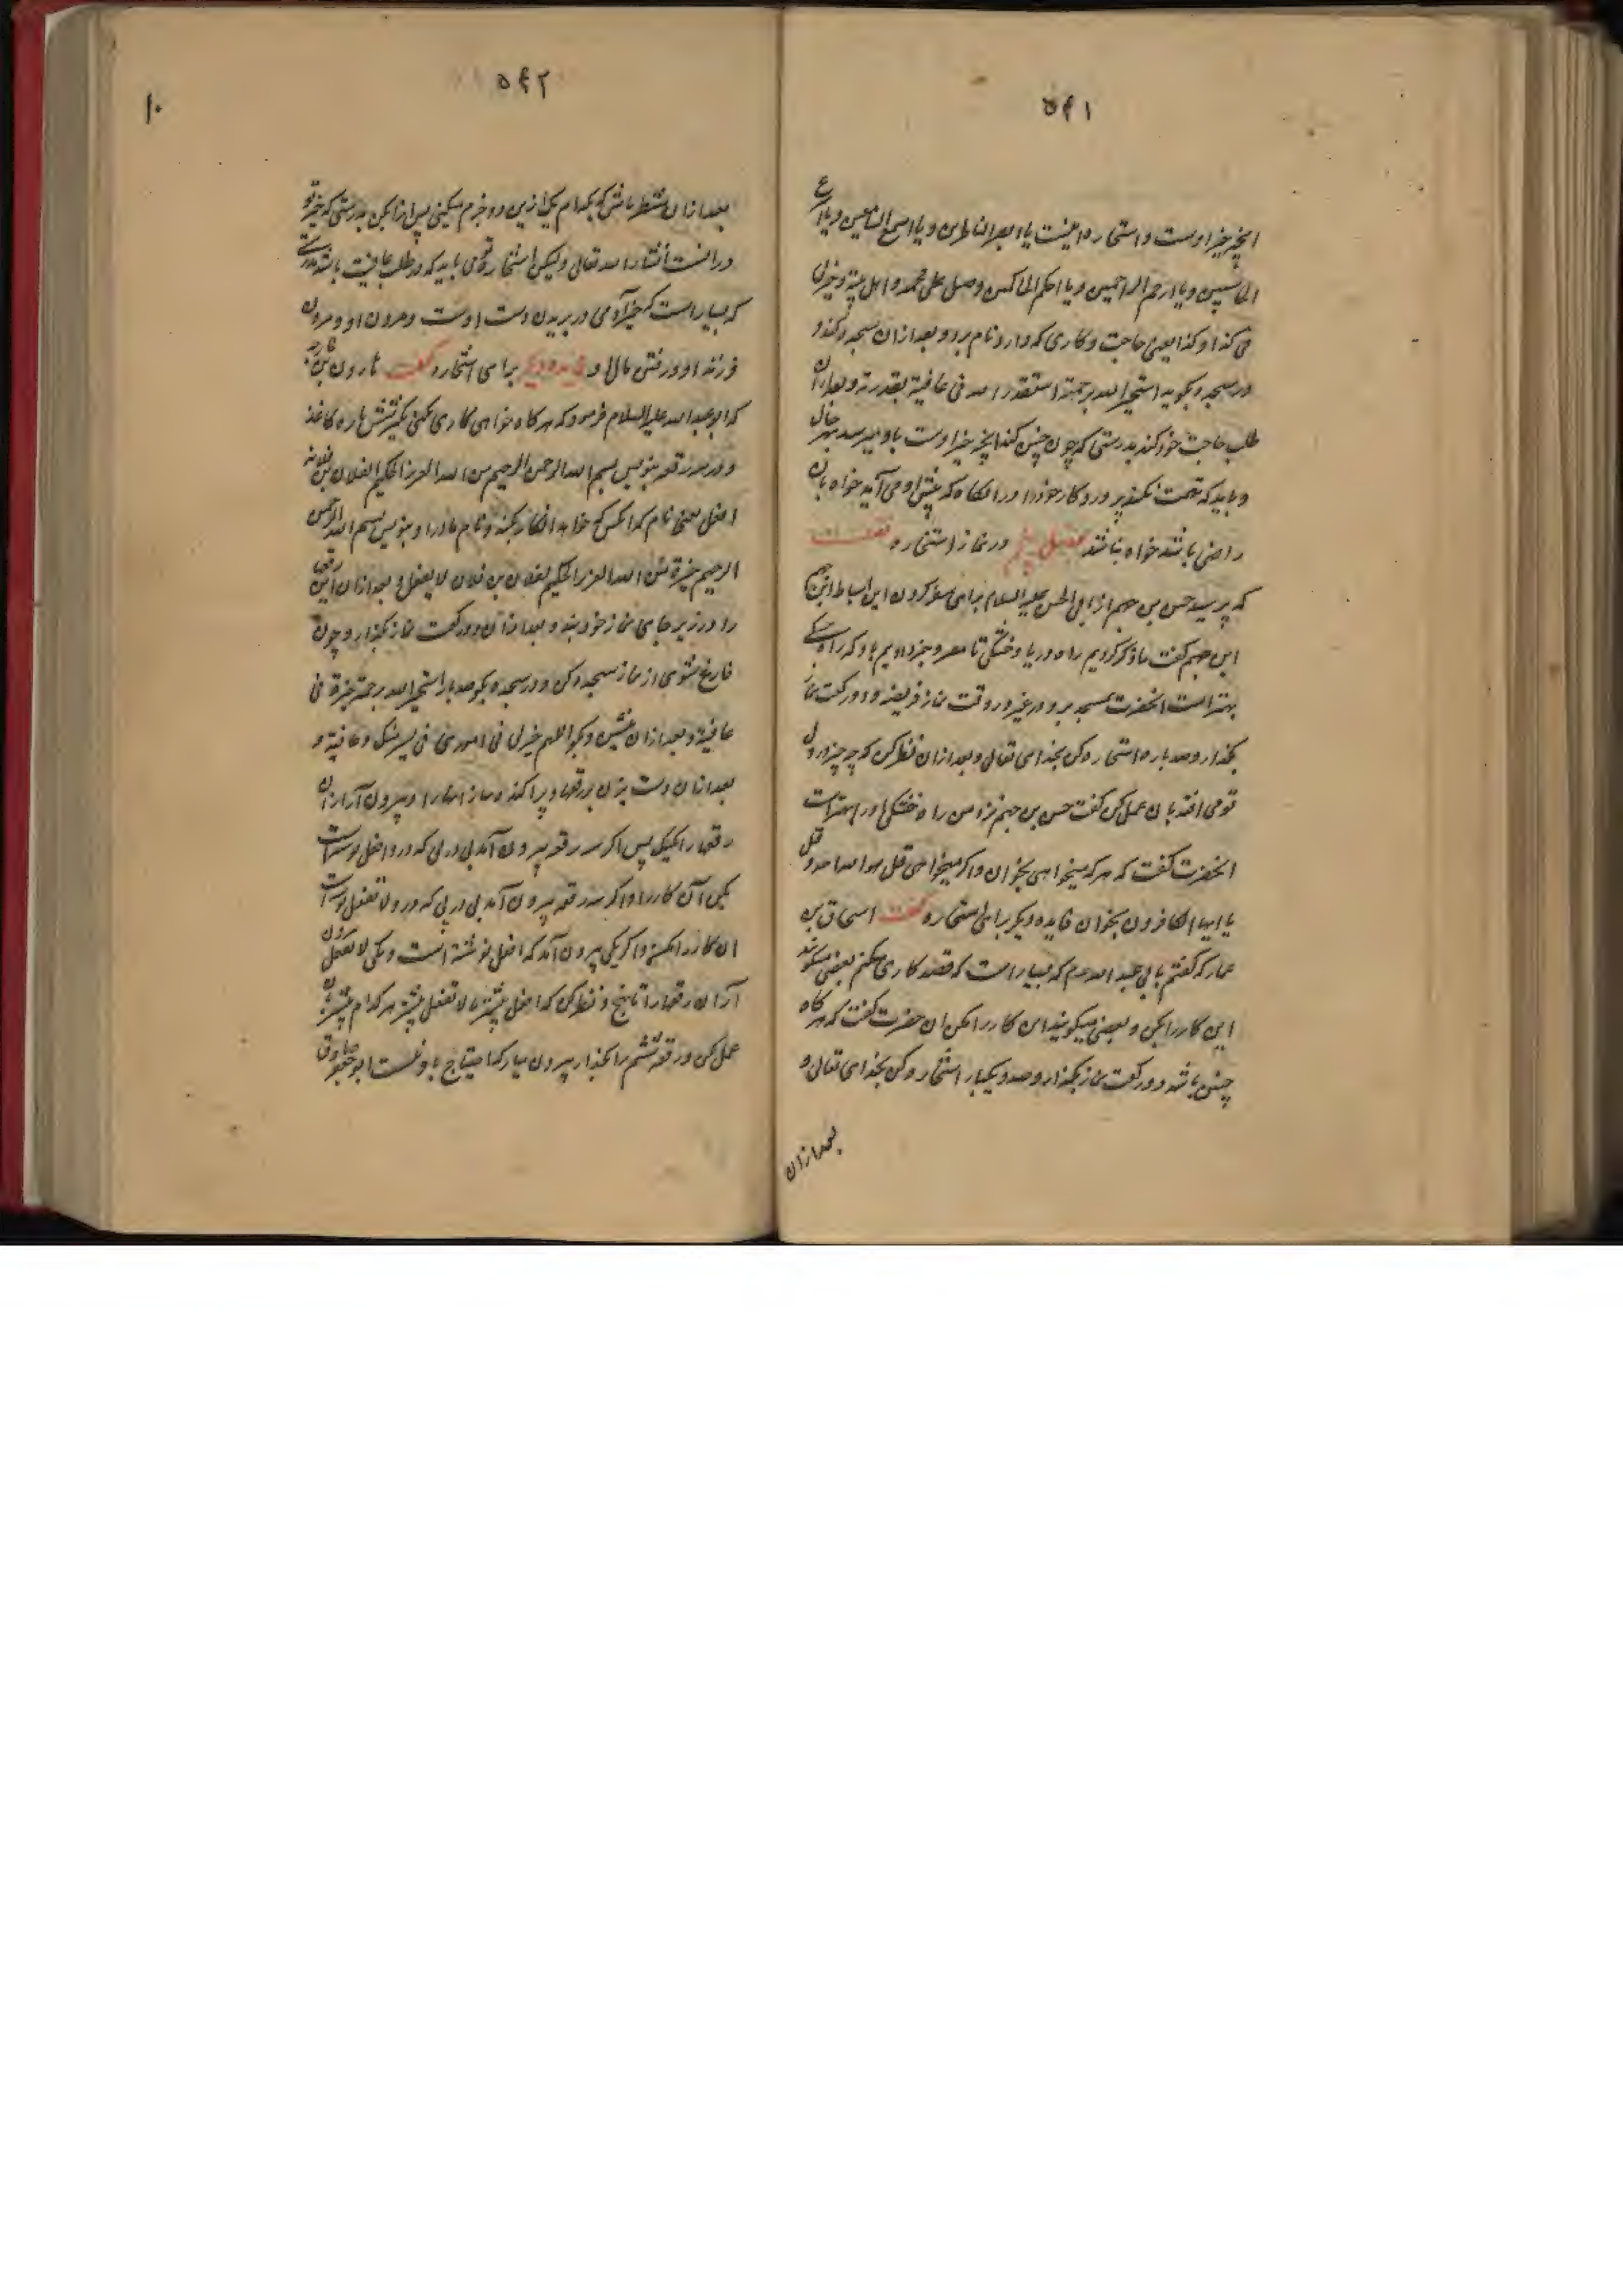 ۵۴۱
انچه خیر اوست و استخاره اینست یا ابصر الناظرین و یا اسمع السامعین و یا اسرع
الحاسبین و یا ارحم الراحمین و یا احکم الحاکمین وصل علی محمد و اهل بیته و خیرلی
فی کذا و کذا یعنی حاجت و کاری که دارد نام برد و بعد ازان سجده کند و
در سجده بگوید استخیر الله برحمته استقدر الله فی عافیة بقدرته و بعد ازان
طلب حاجت خود کند بدرستی که چون چنین کند انچه خیر اوست باو میرسد بهر حال
و باید که تهمت نکند پروردکار خود را در انکاه که پیش او می آید خواه بان
راضی باشد خواه نباشد فصل پنجم در نماز استخاره
که پرسید حسن بن جهم از ابی الحسن علیه السلام برای سفر کردن ابن اسباط ابن جهم
ابن جهم گفت ما ذکر کردیم راه دریا و خشکی تا مصر و خبر دادیم باو که راه خشکی
بهتر است انحضرت بمسجد برو در غیر وقت نماز فریضه و دو رکعت نماز
بگذار و صد بار استخاره کن بخدای تعالی و بعد ازان نظر کن که چه چیز در دل
تو می افتد بان عمل کن گفت حسن بن جهم نزد من راه خشکی اور بهتر است
انحضرت گفت که هر که میخواهی بخوان و اگر میخواهی قل هو الله احد و قل
یا ایها الکافرون بخوان فایده دیگر برای استخاره گفت اسحاق بن
عمار که گفتم بابی عبد الله م که بسیار است که قصد کاری میکنم بعضی میگویند
این کار را بکن و بعضی میگویند این کار را مکن ان حضرت گفت که هر کاه
چنین باشد دو رکعت نماز بگذار و صد و یکبار استخاره کن بخدای تعالی و
بعد ازان
۵۴۲
۱۰
بعد ازان منتظر باش که بکدام یک ازین دو جزم میکنی پس انرا بکن بدرستی که خیر تو
درانست انشاء الله تعالی و لیکن استخاره تو می باید که در طلب عافیت باشد بدرستی
که بسیار است که خیر آدمی در بریدن دست اوست و مردن او و مردن
فرزند او و رفتن مال او فایده دیگر برای استخاره گفت هارون بن خارجه
که ابو عبد الله علیه السلام فرمود که هر کاه خواهی کاری کنی بگیر شش پاره کاغذ
و در سه رقعه بنویس بسم الله الرحمن الرحیم من الله العزیز الحکیم لفلان بن فلانه
افعل یعنی نام که انکس که خواهد انکار بکند و نام مادر او بنویس بسم الله الرحمن
الرحیم خیرة من الله العزیز الحکیم لفلان بن فلان لا یفعل و بعد ازان این رقعها
را در زیر جای نماز خود بنه و بعد ازان دو رکعت نماز بگذار و چون
فارغ شوی از نماز سجده کن و در سجده بگو صد بار استخیر الله برحمته خیرة فی
عافیة و بعد ازان بنشین و بگو اللهم خیرلی فی اموری فی یسر منک و عافیة و
بعد ازان دست بزن بر رقعها و پراکنده ساز انها را و بیرون آر ازان
رقعها را یکیک پس اگر سه رقعه بیرون آمد پی در پی که در و افعل نوشته است
بکن آن کار را و اگر سه رقعه بیرون آمد پی در پی که در و لا تفعل نوشته است
ان کار را مکن و اگر یکی بیرون آمد که افعل نوشته است و یکی لا تفعل بیرون
آر ازان رقعها را تا پنج و نظر کن که افعل بیشتر یا لا تفعل بیشتر هر کدام بیشتر بان
عمل کن و رقعه ششم را بگذار بیرون میار که احتیاج باو نیست ابو جعفر صادق